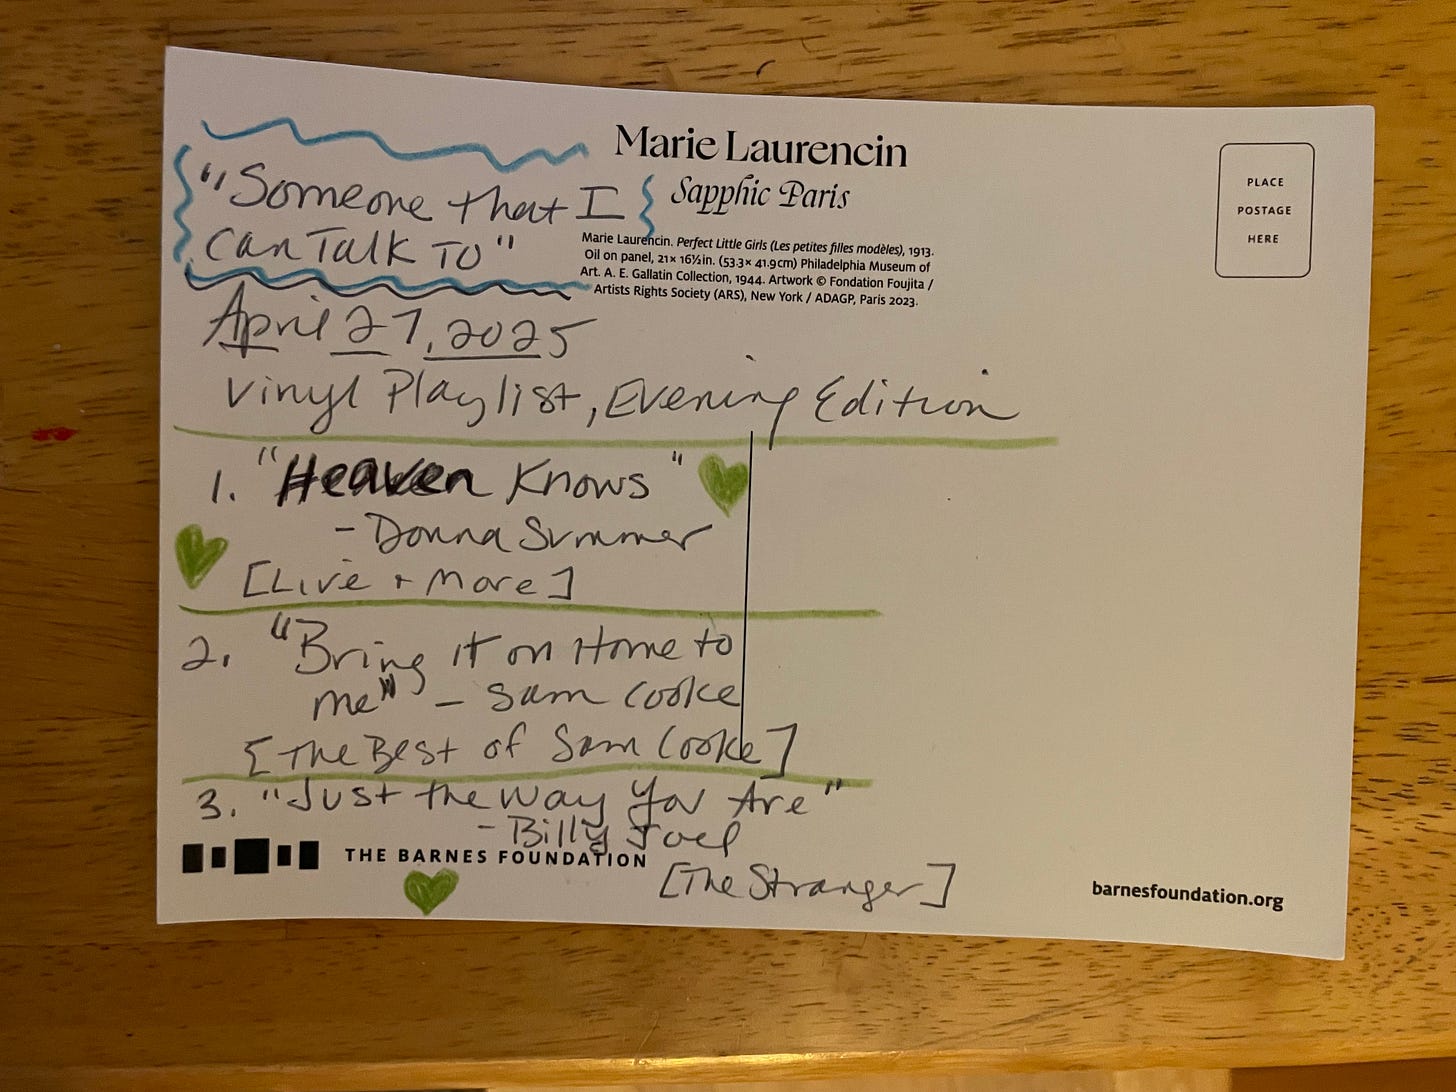 Marie Laurencin
Sapphic Paris
Marie Laurencin. Perfect Little Girls (Les petites filles modèles), 1913.
Oil on panel, 21 x 16½ in. (53.3 x 41.9 cm) Philadelphia Museum of
Art. A. E. Gallatin Collection, 1944. Artwork © Fondation Foujita /
Artists Rights Society (ARS), New York / ADAGP, Paris 2023.
PLACE
POSTAGE
HERE
"Someone that I
can Talk To"
April 27, 2025
Vinyl Playlist, Evening Edition
1. "Heaven Knows"
- Donna Summer
[Live + More]
2. "Bring it on Home to
me" - Sam Cooke
[The Best of Sam Cooke]
3. "Just the Way You Are"
- Billy Joel
[The Stranger]
THE BARNES FOUNDATION
barnesfoundation.org